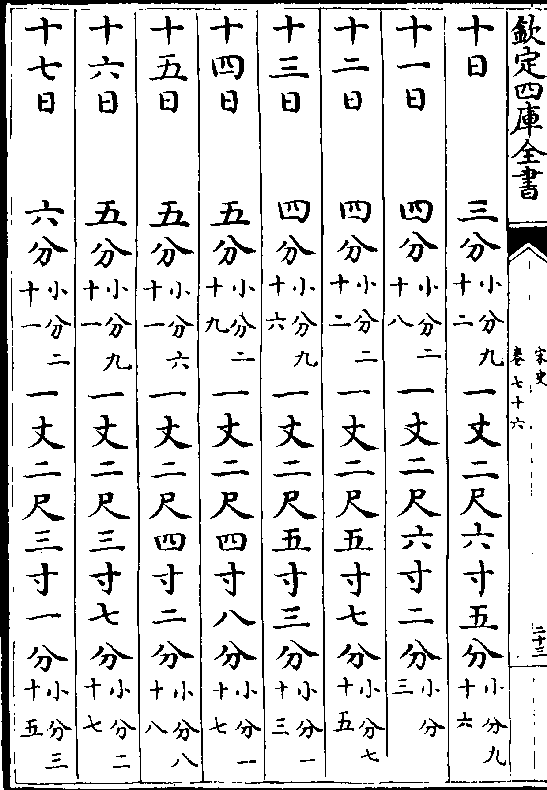 欽定四庫全書
宋史
卷七十六
二十三
十日 三分小分九十二 一丈二尺六寸五分小分九十六
十一日 四分小分二十八 一丈二尺六寸二分小分三
十二日 四分小分二十二 一丈二尺五寸七分小分七十五
十三日 四分小分九十六 一丈二尺五寸三分小分一十三
十四日 五分小分二十九 一丈二尺四寸八分小分一十七
十五日 五分小分六十一 一丈二尺四寸二分小分八十八
十六日 五分小分九十一 一丈二尺三寸七分小分二十七
十七日 六分小分二十一 一丈二尺三寸一分小分三十五